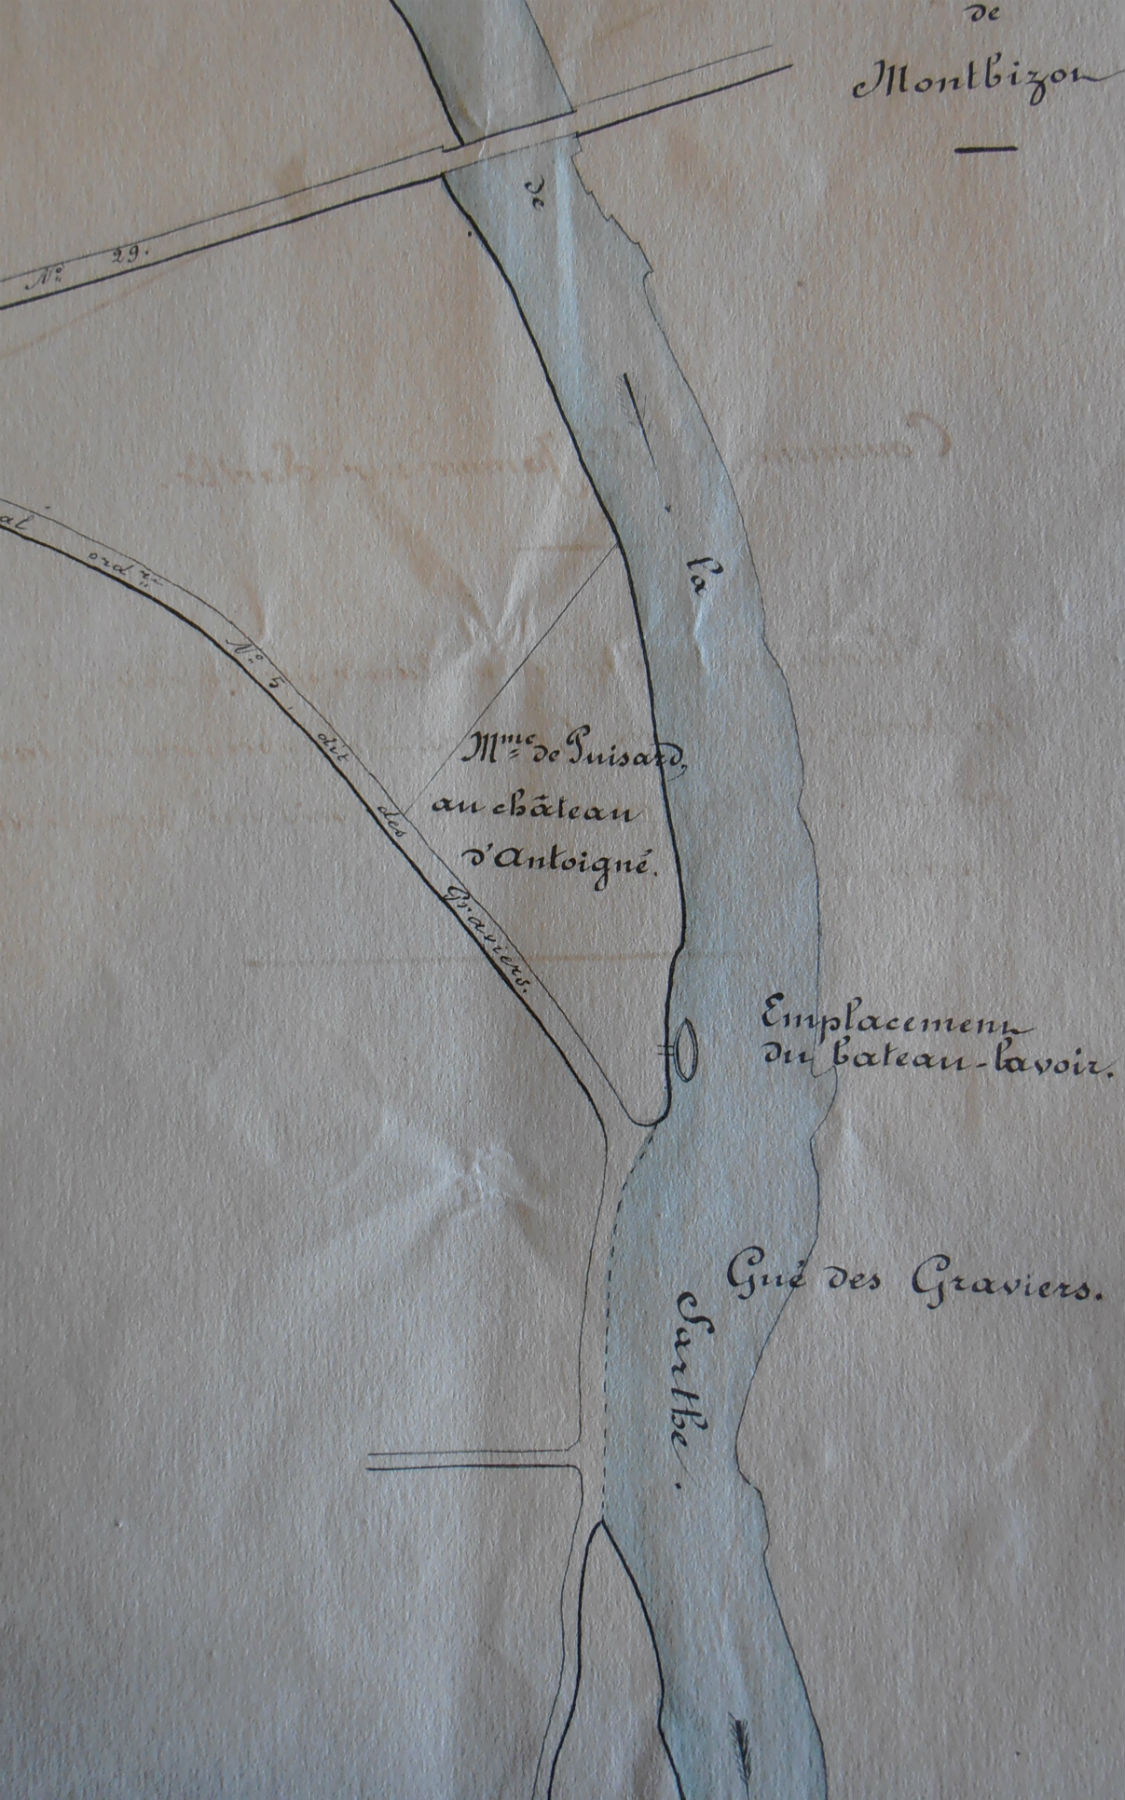 de
Montbizon
de
No 29.
la
al ordre No 5, dit des Graviers.
Mme de Puisard,
au château
d'Antoigné.
Emplacement
du bateau-lavoir.
Gué des Graviers.
Sarthe.